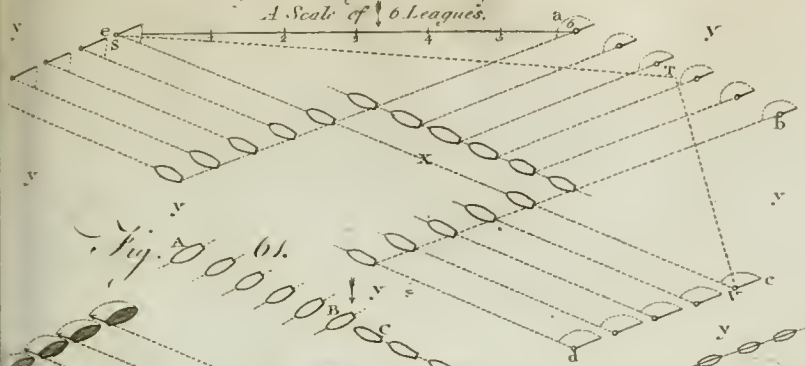 A Scale of 6 Leagues.
y e S 1 2 3 4 5 6 a y
T
b
x
y y
y
Fig. 61.
A
B C
y
c
V
d
y